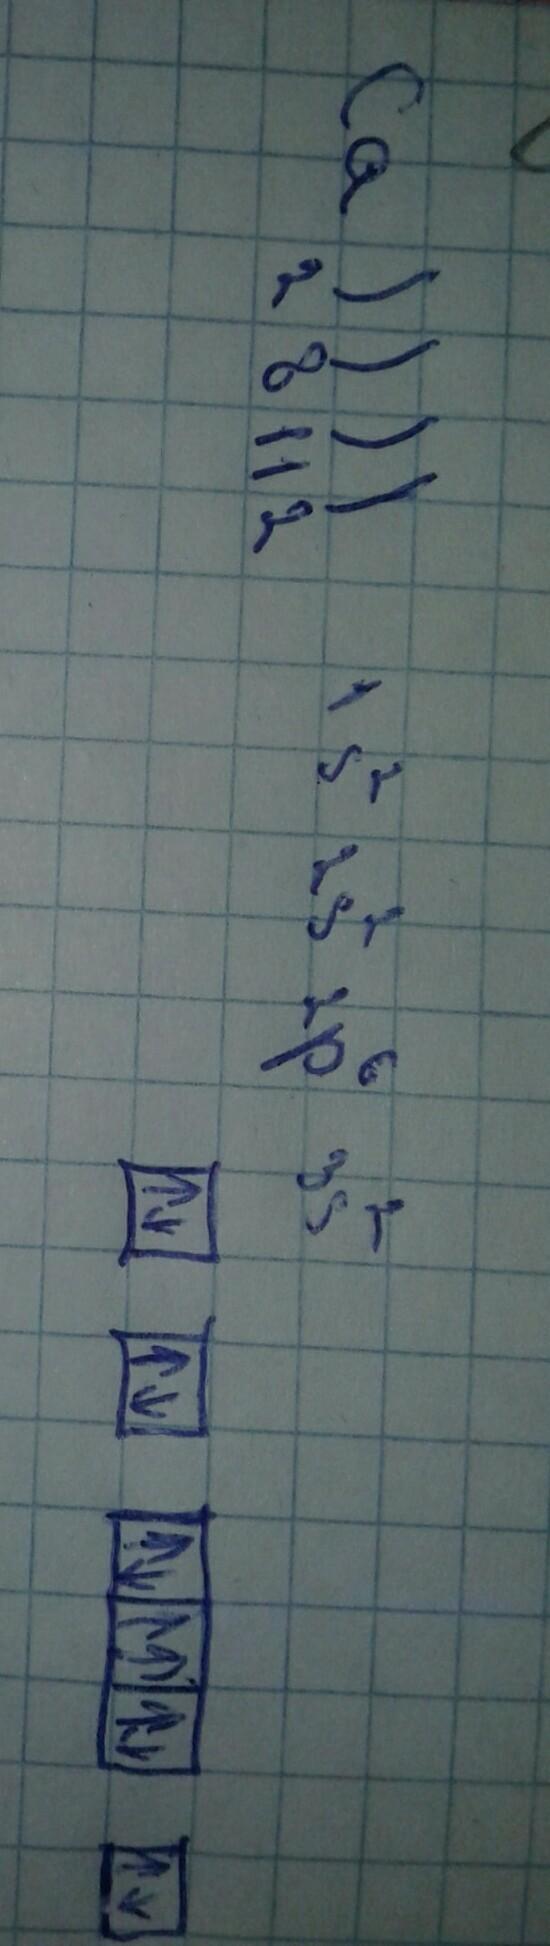 Ca ) ) ) )
2 8 11 2
1s² 2s² 2p⁶ 3s²
↑↓ ↑↓ ↑↓ ↑↑ ↑↓ ↑↓